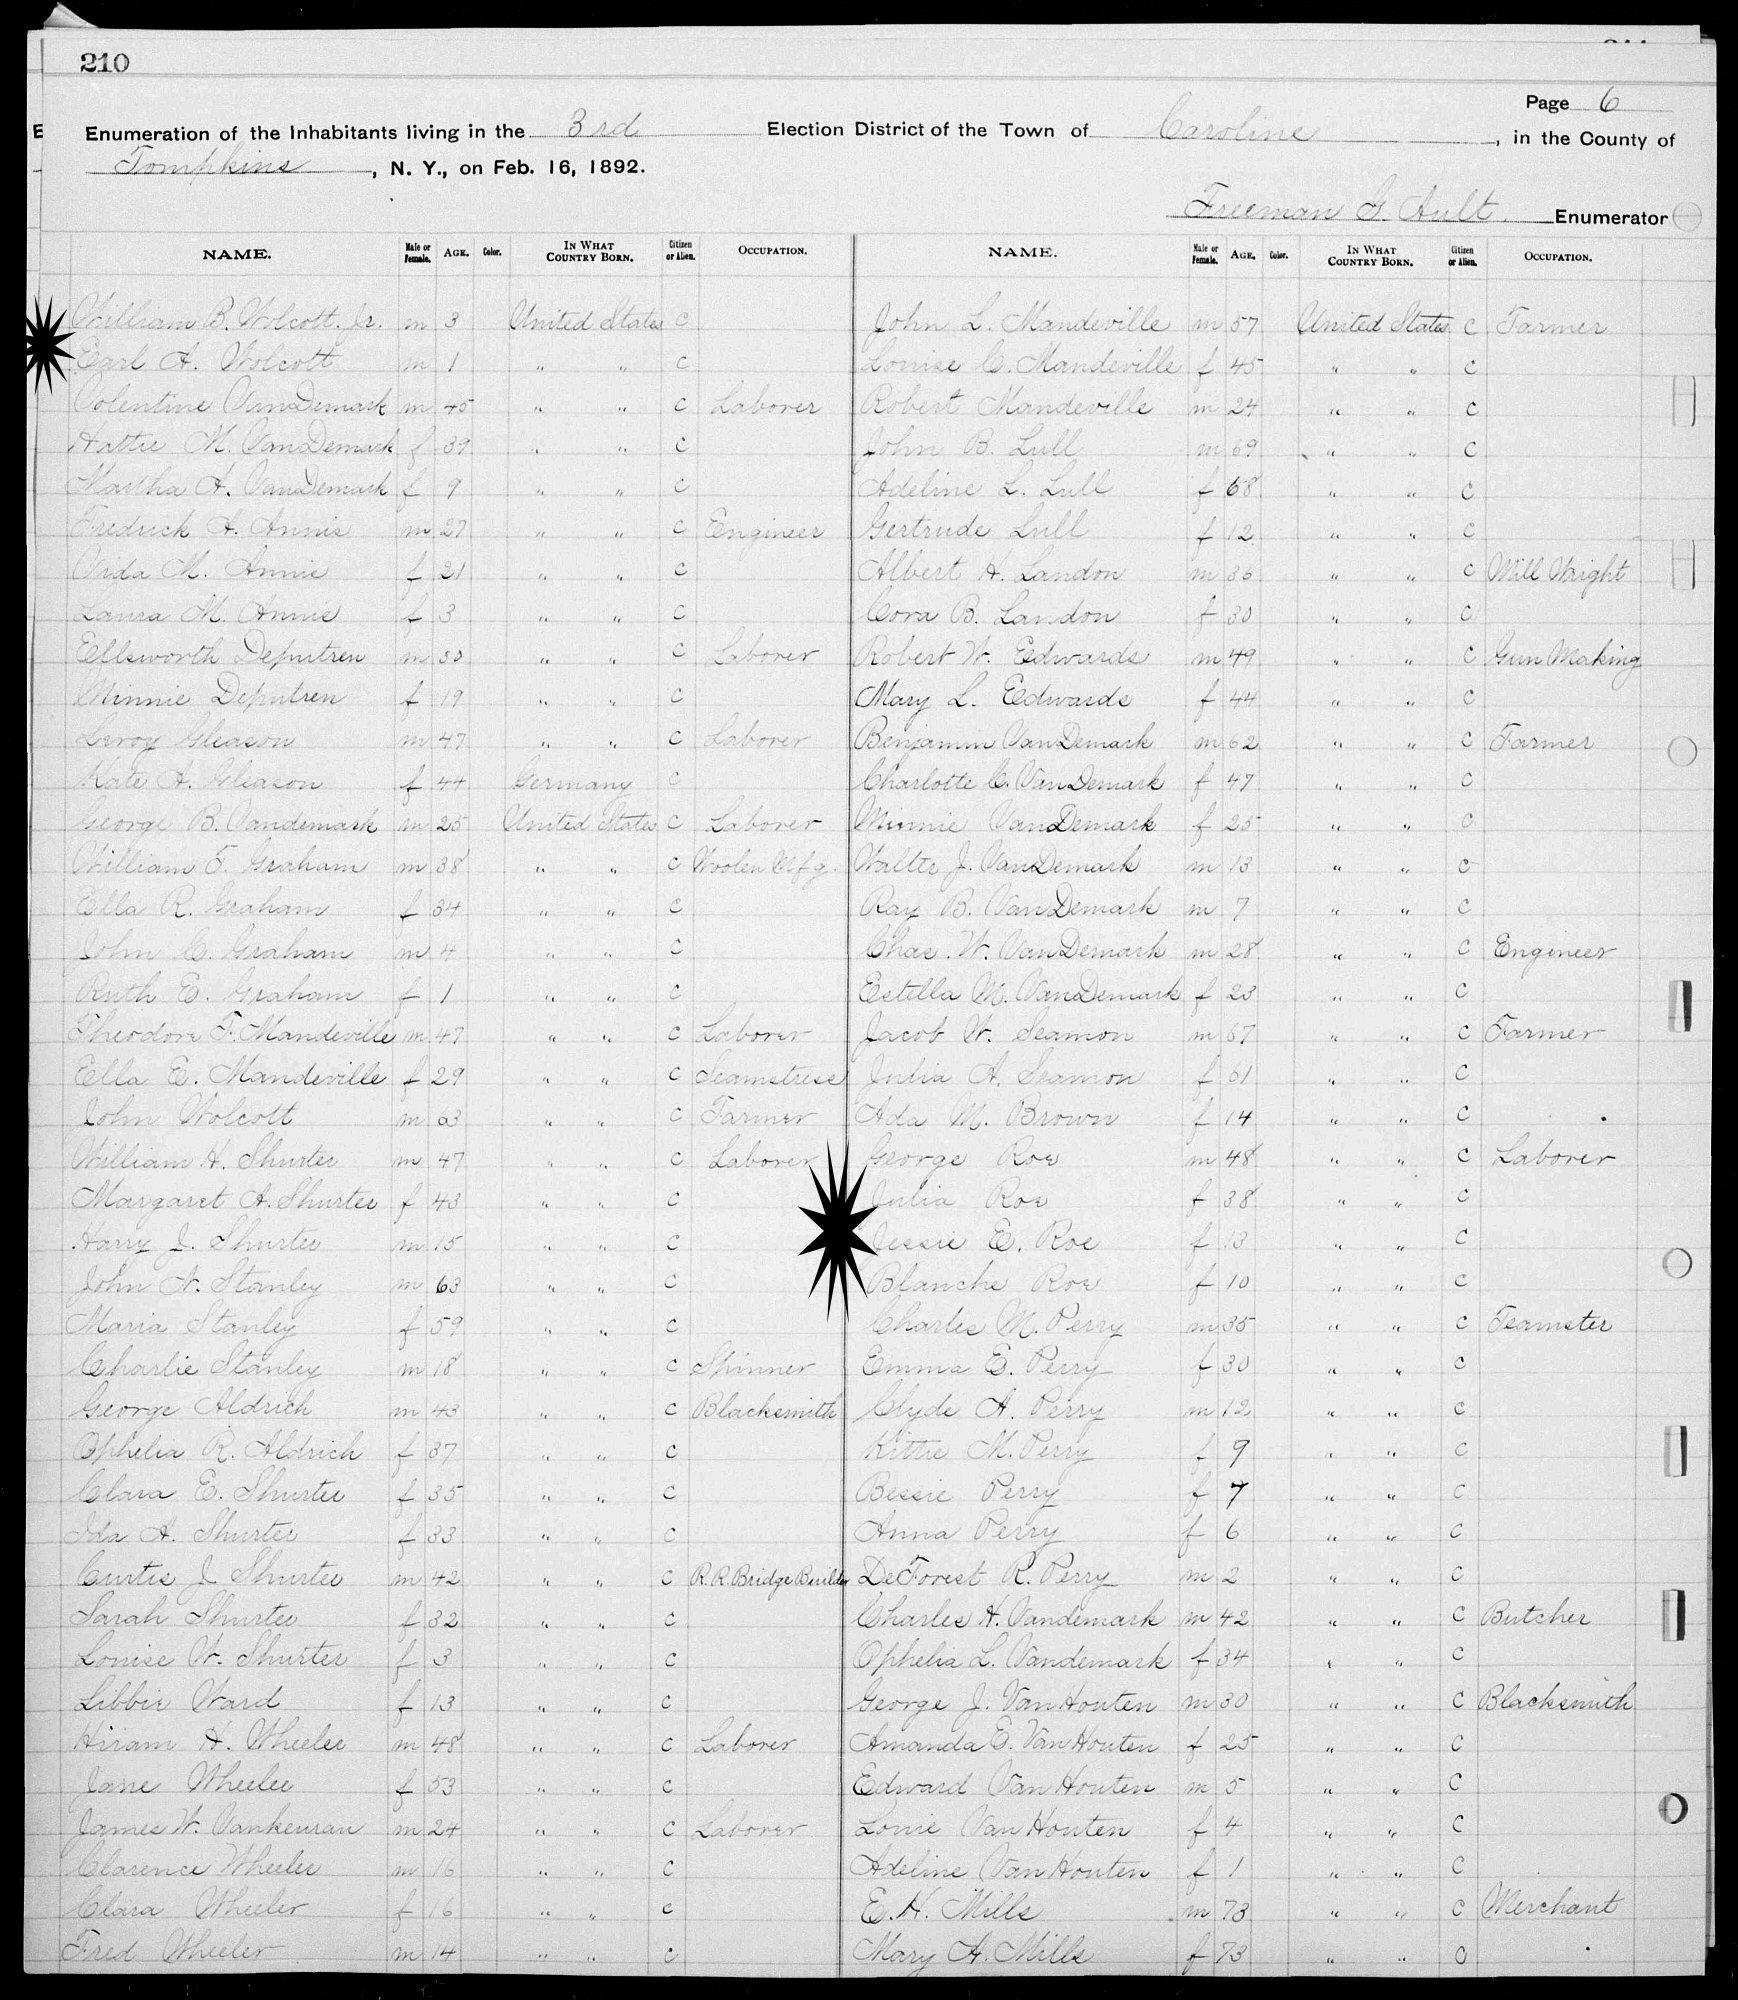 210
Page 6
Enumeration of the Inhabitants living in the 3rd Election District of the Town of Caroline, in the County of
Tompkins, N. Y., on Feb. 16, 1892.
Freeman G. Ault. Enumerator
NAME. Male or Female. AGE. Color. IN WHAT COUNTRY BORN. Citizen or Alien. OCCUPATION.
William B. Wolcott. Jr. m 3 United States C
Earl A. Wolcott m 1 " " C
Volentine VanDemark m 45 " " C Laborer
Hattie M. VanDemark f 39 " " C
Martha A. VanDemark f 9 " " C
Fredrick A. Annis m 27 " " C Engineer
M. Annis f 21 " " C
Laura M. Annis f 3 " " C
Ellsworth Deputren m 30 " " C Laborer
Minnie Deputren f 19 " " C
Leroy Gleason m 47 " " C Laborer
Kate A. Gleason f 44 Germany C
George B. Vandemark m 25 United States C Laborer
William F. Graham m 38 " " C Woolen Mfg.
Ella R. Graham f 34 " " C
John C. Graham m 4 " " C
Ruth E. Graham f 1 " " C
Theodore F. Mandeville m 47 " " C Laborer
Ella E. Mandeville f 29 " " C Seamstress
John Wolcott m 63 " " C Farmer
William H. Shurter m 47 " " C Laborer
Margaret A. Shurter f 43 " " C
Harry J. Shurter m 15 " " C
John N. Stanley m 63 " " C
Maria Stanley f 59 " " C
Charlie Stanley m 18 " " C Spinner
George Aldrich m 43 " " C Blacksmith
Ophelia R. Aldrich f 37 " " C
Clara E. Shurter f 35 " " C
Ida A. Shurter f 33 " " C
Curtis J Shurter m 42 " " C R.R. Bridge Builder
Sarah Shurter f 32 " " C
Louise W. Shurter f 3 " " C
Libbie Ward f 13 " " C
Hiram H. Wheeler m 48 " " C Laborer
Jane Wheeler f 53 " " C
James W. Vankeuran m 24 " " C Laborer
Clarence Wheeler m 16 " " C
Clara Wheeler f 16 " " C
Fred Wheeler m 14 " " C
NAME. Male or Female. AGE. Color. IN WHAT COUNTRY BORN. Citizen or Alien. OCCUPATION.
John L. Mandeville m 57 United States C Farmer
Louise C. Mandeville f 45 " " C
Robert Mandeville m 24 " " C
John B. Lull m 69 " " C
Adeline L. Lull f 68 " " C
Gertrude Lull f 12 " " C
Albert H. Landon m 36 " " C Mill Wright
Cora B. Landon f 30 " " C
Robert W. Edwards m 49 " " C Gun Making
Mary L. Edwards f 44 " " C
Benjamin VanDemark m 62 " " C Farmer
Charlotte C. VanDemark f 47 " " C
Minnie VanDemark f 25 " " C
Walter J. VanDemark m 13 " " C
Ray B. VanDemark m 7 " " C
Chas. W. VanDemark m 28 " " C Engineer
Estella M. VanDemark f 23 " " C
Jacob W. Seamon m 67 " " C Farmer
Julia A. Seamon f 61 " " C
Ada M. Brown f 14 " " C
George Roe m 48 " " C Laborer
Julia Roe f 38 " " C
Jessie E. Roe f 13 " " C
Blanche Roe f 10 " " C
Charles M. Perry m 35 " " C Teamster
Emma E. Perry f 30 " " C
Clyde A. Perry m 12 " " C
Kittie M. Perry f 9 " " C
Bessie Perry f 7 " " C
Anna Perry f 6 " " C
DeForest R. Perry m 2 " " C
Charles H. Vandemark m 42 " " C Butcher
Ophelia L. Vandemark f 34 " " C
George J. VanHouten m 30 " " C Blacksmith
Amanda E. VanHouten f 25 " " C
Edward VanHouten m 5 " " C
Louie VanHouten f 4 " " C
Adeline VanHouten f 1 " " C
E. H. Mills m 73 " " C Merchant
Mary A. Mills f 73 " " C